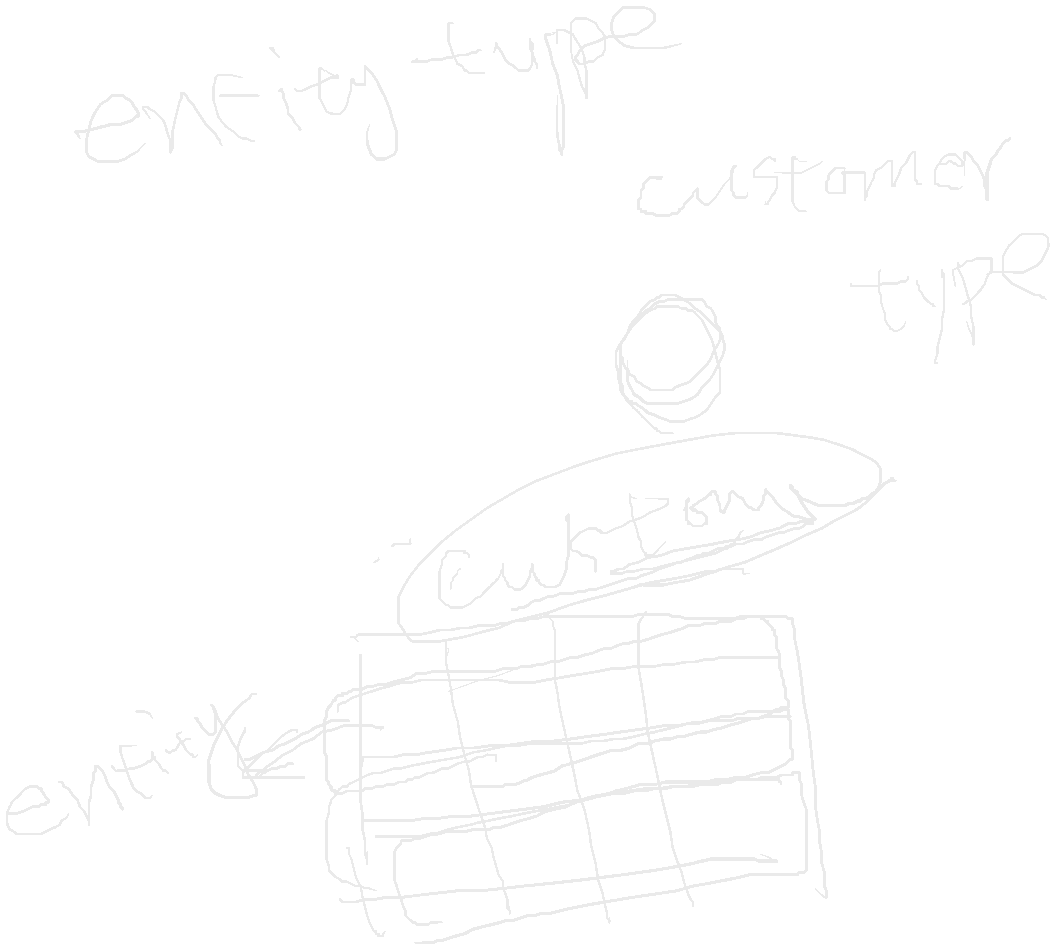 entity type
customer
type
custom
entity